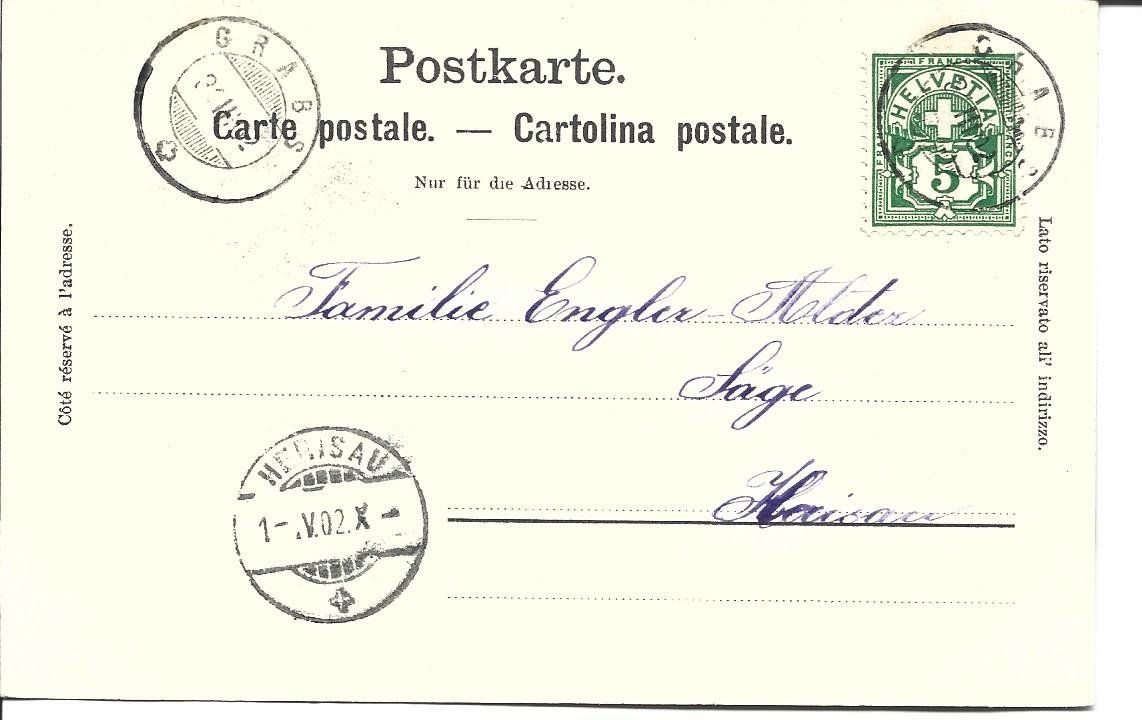 GRABS
Postkarte.
Carte postale. — Cartolina postale.
Nur für die Adresse.
FRANCO
HELVETIA
FRANCO
FRANCO
5
GRABS
Côté réservé à l'adresse.
Lato riservato all' indirizzo.
Familie Engler-Alder
Säge
Herisau
HERISAU
1-.V.02.X-